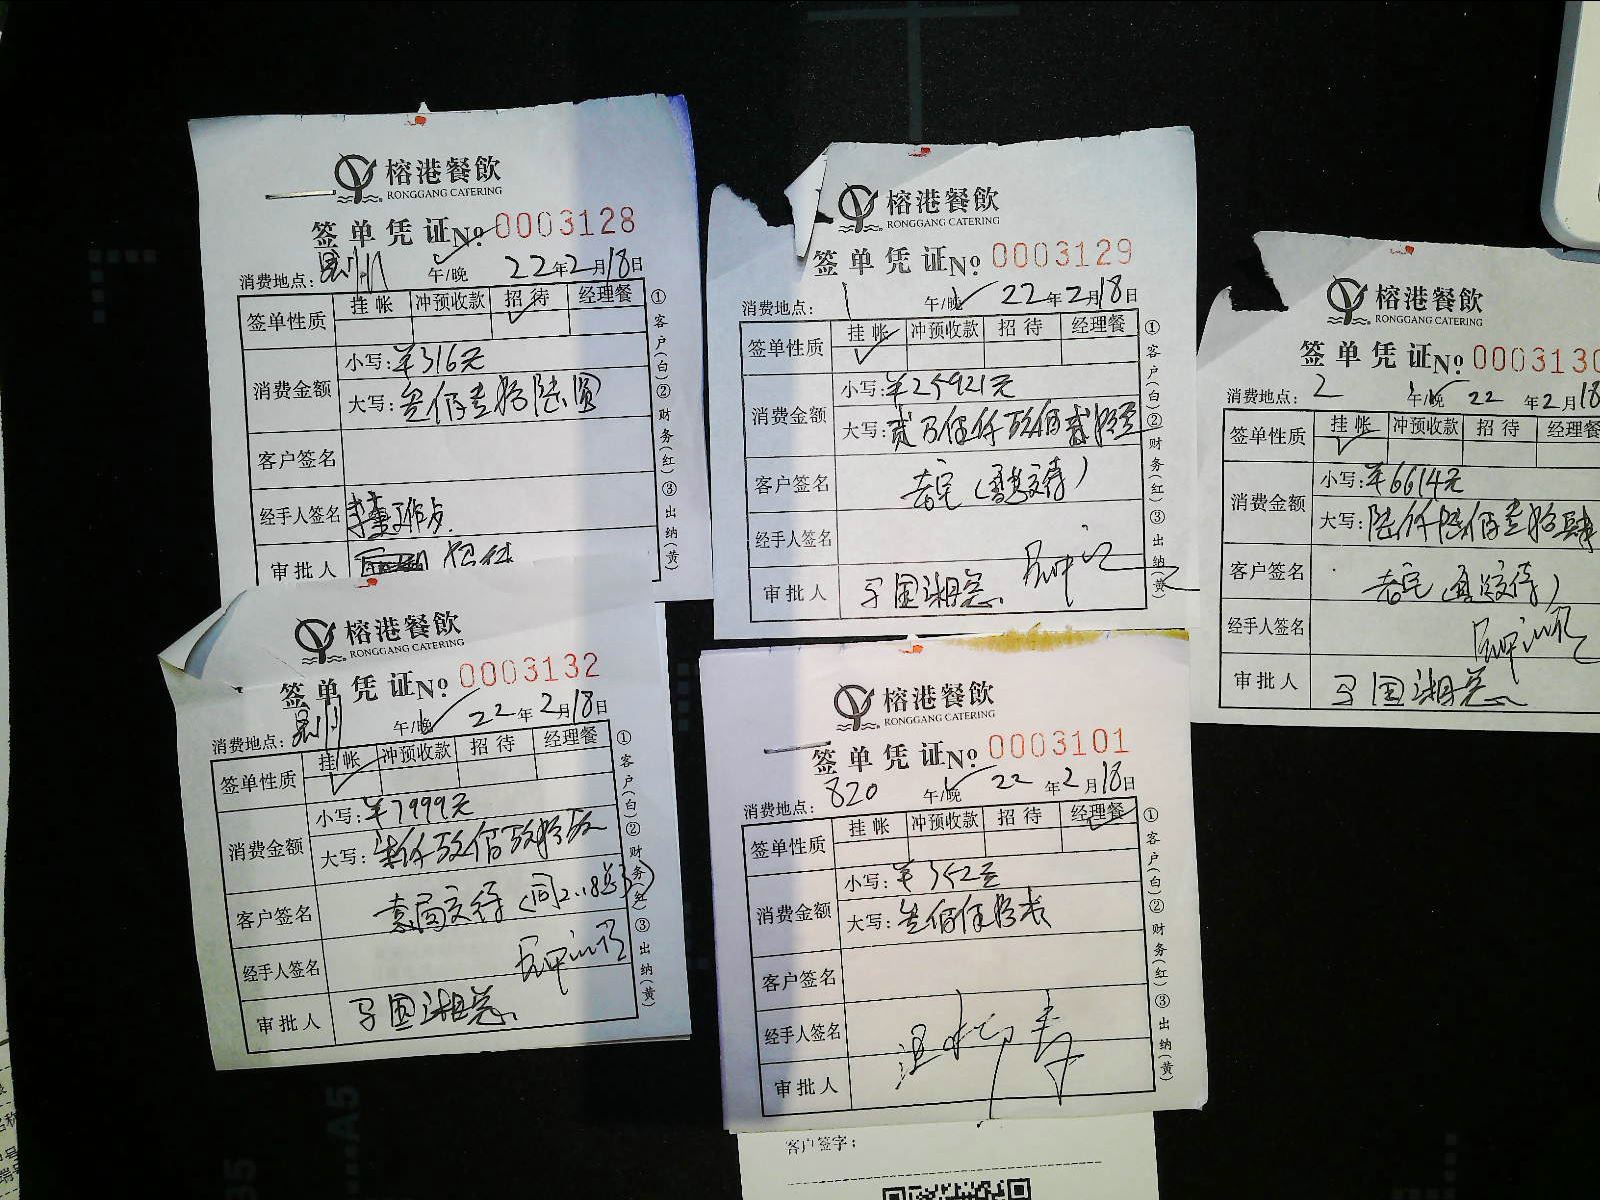 榕港餐飲
RONGGANG CATERING
签单凭证No 0003128
消费地点: 午/晚 22年2月18日
签单性质 挂帐 冲预收款 招待 经理餐
消费金额 小写:¥316元
大写:叁佰壹拾陆圆
客户签名
经手人签名
审批人
①客户(白)②财务(红)③出纳(黄)
榕港餐飲
RONGGANG CATERING
签单凭证No 0003129
消费地点: 1 午/晚 22年2月18日
签单性质 挂帐 冲预收款 招待 经理餐
消费金额 小写:¥25921元
大写:贰万伍仟玖佰贰拾壹
客户签名
经手人签名
审批人
①客户(白)②财务(红)③出纳(黄)
榕港餐飲
RONGGANG CATERING
签单凭证No 0003130
消费地点: 2 午/晚 22年2月18
签单性质 挂帐 冲预收款 招待 经理餐
消费金额 小写:¥6614元
大写:陆仟陆佰壹拾肆
客户签名
经手人签名
审批人
榕港餐飲
RONGGANG CATERING
签单凭证No 0003132
消费地点: 午/晚 22年2月18日
签单性质 挂帐 冲预收款 招待 经理餐
消费金额 小写:¥7999元
大写:柒仟玖佰玖拾玖
客户签名 袁局交待
经手人签名
审批人
①客户(白)②财务(红)③出纳(黄)
榕港餐飲
RONGGANG CATERING
签单凭证No 0003101
消费地点: 820 午/晚 22年2月18日
签单性质 挂帐 冲预收款 招待 经理餐
消费金额 小写:¥352元
大写:叁佰伍拾贰
客户签名
经手人签名
审批人
①客户(白)②财务(红)③出纳(黄)
客户签字:
A5